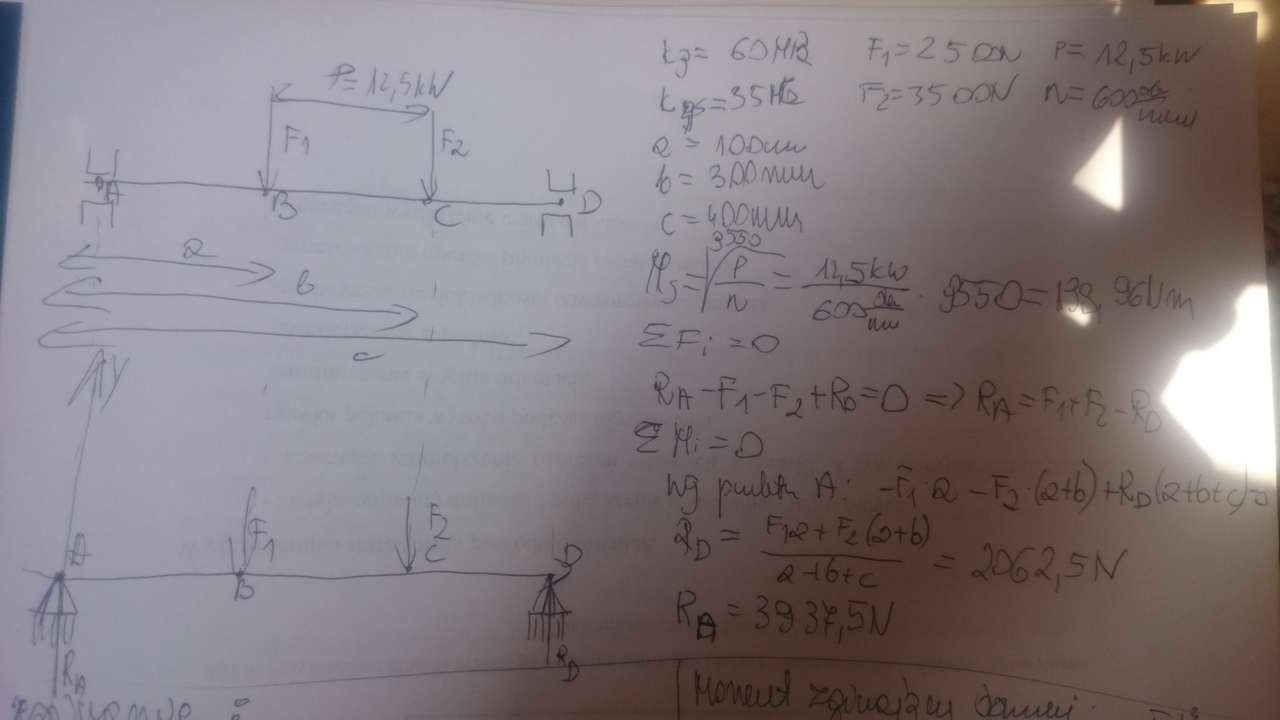 P=12,5kW
F1
F2
A
B
C
D
a
b
c
y
A
F1
B
F2
C
D
RA
RD
kg= 60MPa F1=2500N P= 12,5kW
kgs=35MPa F2=3500N n=600
a = 100mm
b = 300mm
c = 400mm
3550
Ms= P/n = 12,5kW/600 · 9550=198,96Nm
ΣFi=0
RA-F1-F2+RD=0 => RA=F1+F2-RD
ΣMi=0
wg punktu A: -F1·a -F2·(a+b)+RD(a+b+c)=0
RD = F1a+F2(a+b)/a+b+c = 2062,5N
RA = 3937,5N
Moment zginający